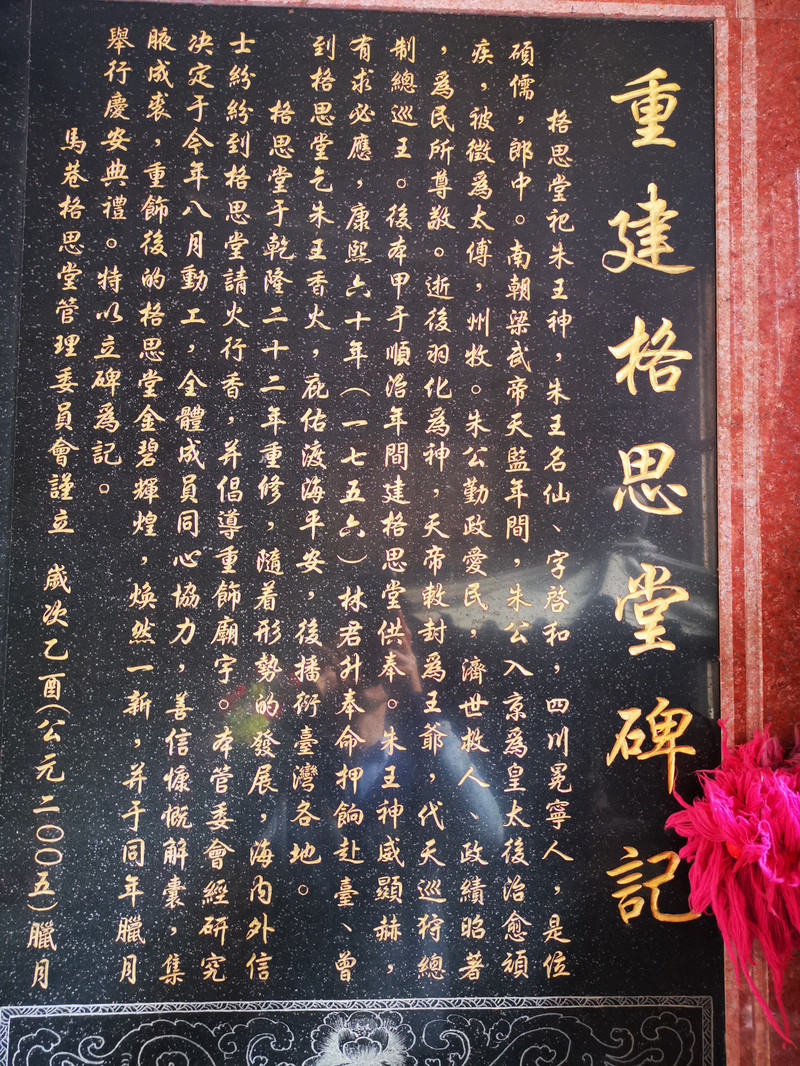 重建格思堂碑記
格思堂祀朱王神，朱王名仙、字啓和，四川冕寧人，是位
碩儒，郎中。南朝梁武帝天監年間，朱公入京爲皇太後治愈頑
疾，被徵爲太傅，州牧。朱公勤政愛民，濟世救人、政績昭著
，爲民所尊敬。逝後羽化爲神，天帝敕封爲王爺，代天巡狩總
制總巡王。後本甲于順治年間建格思堂供奉。朱王神威顯赫，
有求必應，康熙六十年（一七五六）林君升奉命押餉赴臺、曾
到格思堂乞朱王香火，庇佑渡海平安，後播衍臺灣各地。
格思堂于乾隆二十二年重修，隨着形勢的發展，海内外信
士紛紛到格思堂請火行香，并倡導重飾廟宇。本管委會經研究
决定于今年八月動工，全體成員同心協力，善信慷慨解囊，集
腋成裘，重飾後的格思堂金碧輝煌，焕然一新，并于同年臘月
舉行慶安典禮。特以立碑爲記。
馬巷格思堂管理委員會謹立 歲次乙酉（公元二〇〇五）臘月